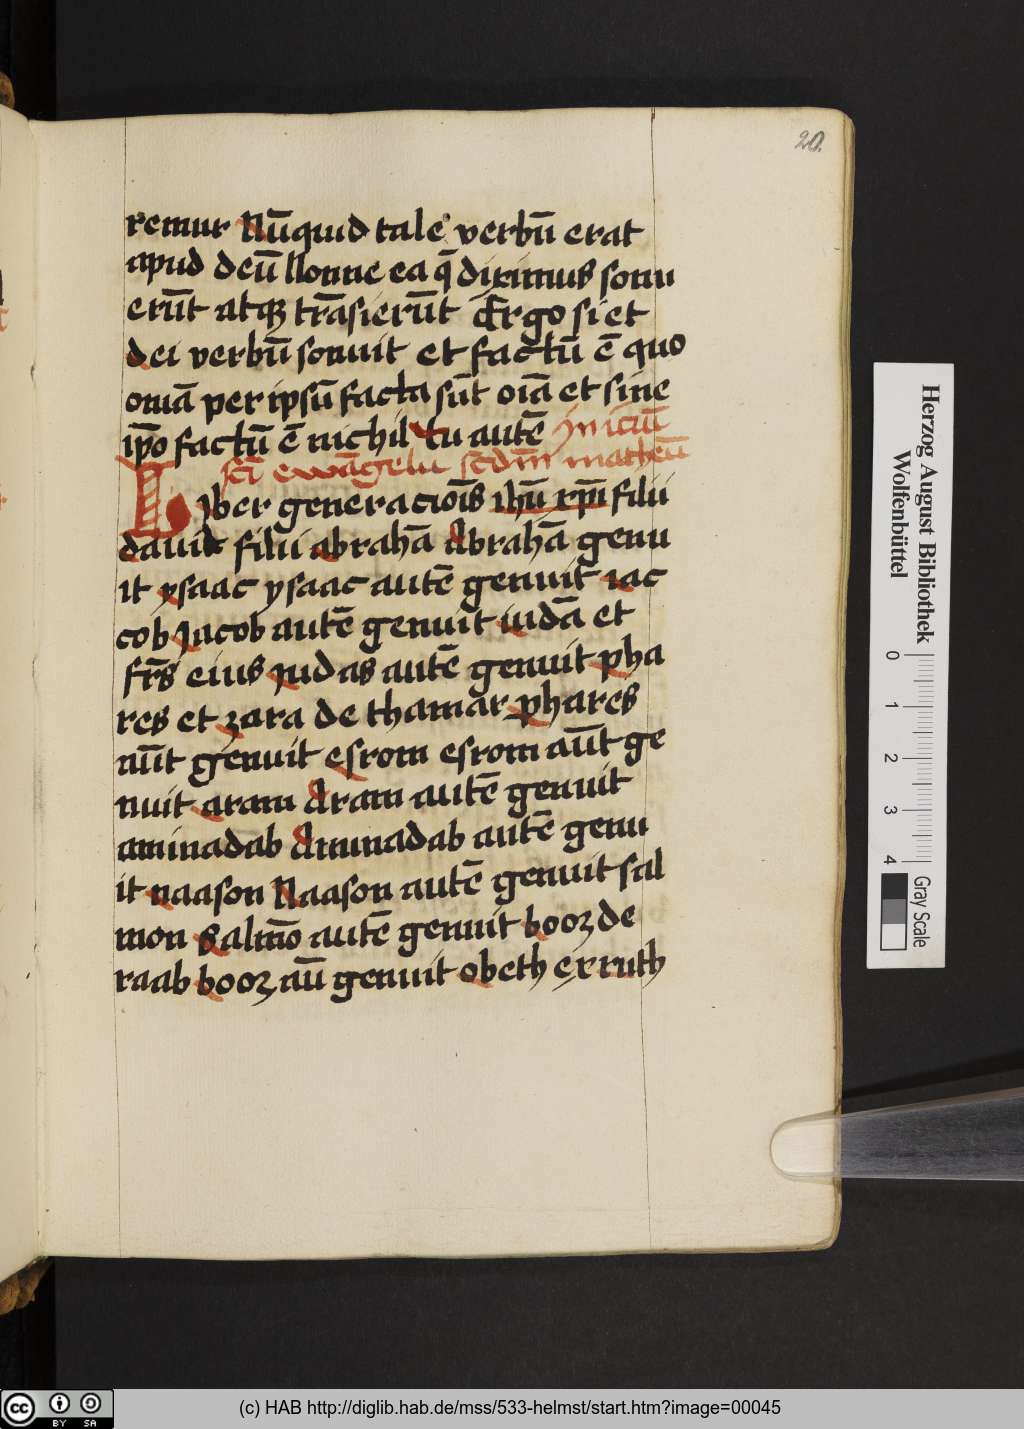 20.
remur Nūquid tale verbū erat
apud deū Nonne ea q̄ diximus sonu
erūt atqꝫ trāsierūt Ergo si et
dei verbū sonuit et factū ē quo
omā per ipsū facta sūt oīa et sine
ip̄o factū ē nichil tu autē Iniciū
sc̄i ewāgelii scd̄m matheū
Liber generacioīs ihū xp̄i filii
dauid filii abrahā Abrahā genu
it ysaac ysaac autē genuit iac
cob Jacob autē genuit iudā et
fr̄s eius Judas autē genuit pha
res et zara de thamar phares
aūt genuit esrom esrom aūt ge
nuit aram Aram autē genuit
aminadab Aminadab autē genu
it naason Naason autē genuit sal
mon Salmō autē genuit booz de
raab booz aū genuit obeth ex ruth
Herzog August Bibliothek
Wolfenbüttel
0 1 2 3 4
Gray Scale
cc BY SA
(c) HAB http://diglib.hab.de/mss/533-helmst/start.htm?image=00045